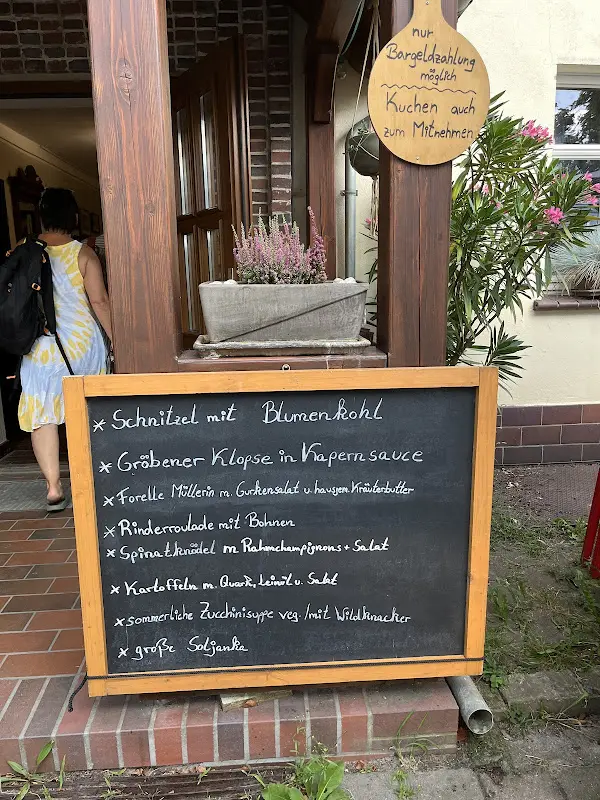 nur
Bargeldzahlung
möglich
Kuchen auch
zum Mitnehmen
* Schnitzel mit Blumenkohl
* Gröbener Klopse in Kapernsauce
* Forelle Müllerin m. Gurkensalat u. hausgem. Kräuterbutter
* Rinderroulade mit Bohnen
* Spinatknödel m Rahmchampignons + Salat
* Kartoffeln m. Quark, Leinöl u. Salat
* sommerliche Zucchinisuppe veg./mit Wildknacker
* große Soljanka